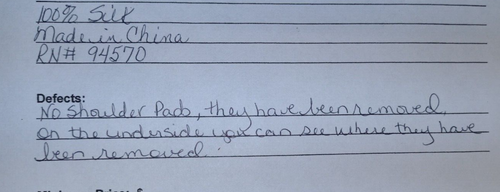 100% Silk
Made in China
RN# 94570
Defects:
No Shoulder Pads, they have been removed.
On the underside you can see where they have
been removed.